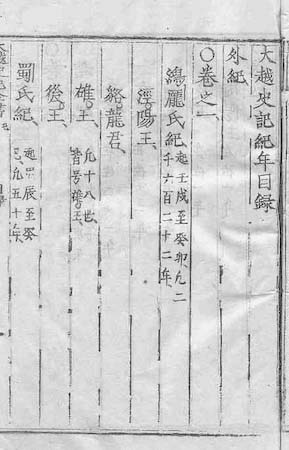 大越史記紀年目録
外紀
〇卷之一
鴻厖氏紀 起壬戌至癸卯凡二
千六百二十二年
涇陽王
貉龍君
雄王 凡十八世
皆号雄王
王
蜀氏紀 起甲辰至癸
巳凡五十年